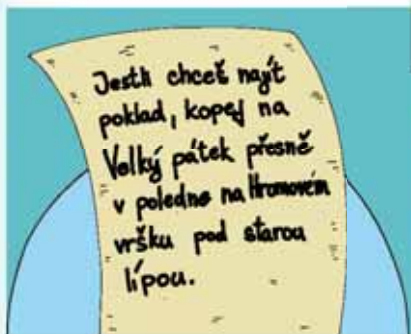 Jestli chceš najít
poklad, kopej na
Velký pátek přesně
v poledne na Hromovém
vršku pod starou
lípou.